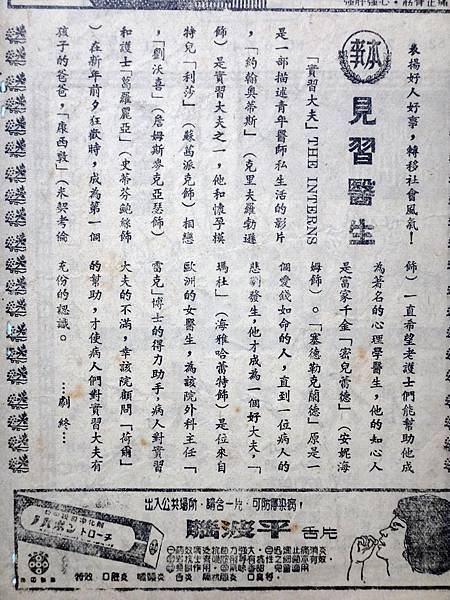 表揚好人好事,轉移社會風氣!
本事
見習醫生
「實習大夫」THE INTERNS
是一部描述青年醫師私生活的影片
,「約翰奧蒂斯」(克里夫羅勃遜
飾)是實習大夫之一,他和懷孕模
特兒「利莎」(蘇葛派克飾)相戀
,「劉沃喜」(詹姆斯麥克亞瑟飾)
和護士「葛羅麗亞」(史蒂芬鮑絲飾
)在新年前夕狂歡時,成為第一個
孩子的爸爸,「康西敦」(米契考倫
飾)一直希望老護士們能幫助他成
為著名的心理學醫生,他的知心人
是富家千金「密兒蕾德」(安妮海
姆飾)。「塞德勒克蘭德」原是一
個愛錢如命的人,直到一位病人的
悲劇發生,他才成為一個好大夫,「
瑪杜」(海雅哈蕾特飾)是位來自
歐洲的女醫生,為該院外科主任「
雷克」博士的得力助手,病人對實習
大夫的不滿,幸該院顧問「荷爾」
的幫助,才使病人們對實習大夫有
充份的認識。
…劇 終…
出入公共場所・請含一片・可防傳染病!
腦波平 舌片
トローチ
特效 口腔炎 咽喉炎